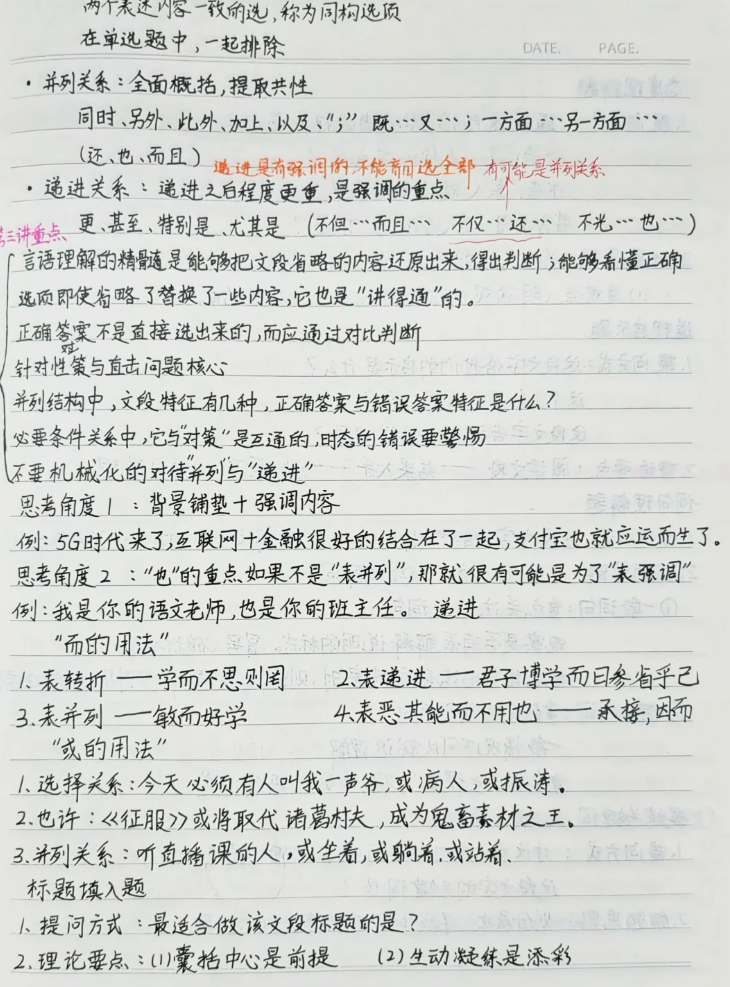 两个表述内容一致的选,称为同构选项
在单选题中,一起排除
DATE. PAGE.
· 并列关系:全面概括,提取共性
同时、另外、此外、加上、以及、“;” 既…又…;一方面…另一方面…
(还、也、而且)
递进是有强调的,不能盲目选全部 有可能是并列关系
· 递进关系:递进之后程度更重,是强调的重点
更、甚至、特别是、尤其是 (不但…而且… 不仅…还… 不光…也…)
第三讲重点
言语理解的精髓是能够把文段省略的内容还原出来,得出判断;能够看懂正确
选项即使省略了替换了一些内容,它也是“讲得通”的。
正确答案不是直接选出来的,而应通过对比判断
针对性对策与直击问题核心
并列结构中,文段特征有几种,正确答案与错误答案特征是什么?
必要条件关系中,它与“对策”是互通的,时态的错误要警惕
不要机械化的对待“并列”与“递进”
思考角度1:背景铺垫+强调内容
例:5G时代来了,互联网+金融很好的结合在了一起,支付宝也就应运而生了。
思考角度2:“也”的重点如果不是“表并列”,那就很有可能是为了“表强调”
例:我是你的语文老师,也是你的班主任。 递进
“而的用法”
1. 表转折——学而不思则罔 2. 表递进——君子博学而日参省乎己
3. 表并列——敏而好学 4. 表恶其能而不用也——承接,因而
“或的用法”
1. 选择关系:今天必须有人叫我一声爷,或病人,或振涛。
2. 也许:《《征服》》或将取代诸葛村夫,成为鬼畜素材之王。
3. 并列关系:听直播课的人,或坐着,或躺着,或站着.
标题填入题
1. 提问方式:最适合做该文段标题的是?
2. 理论要点:(1)囊括中心是前提 (2)生动凝练是添彩